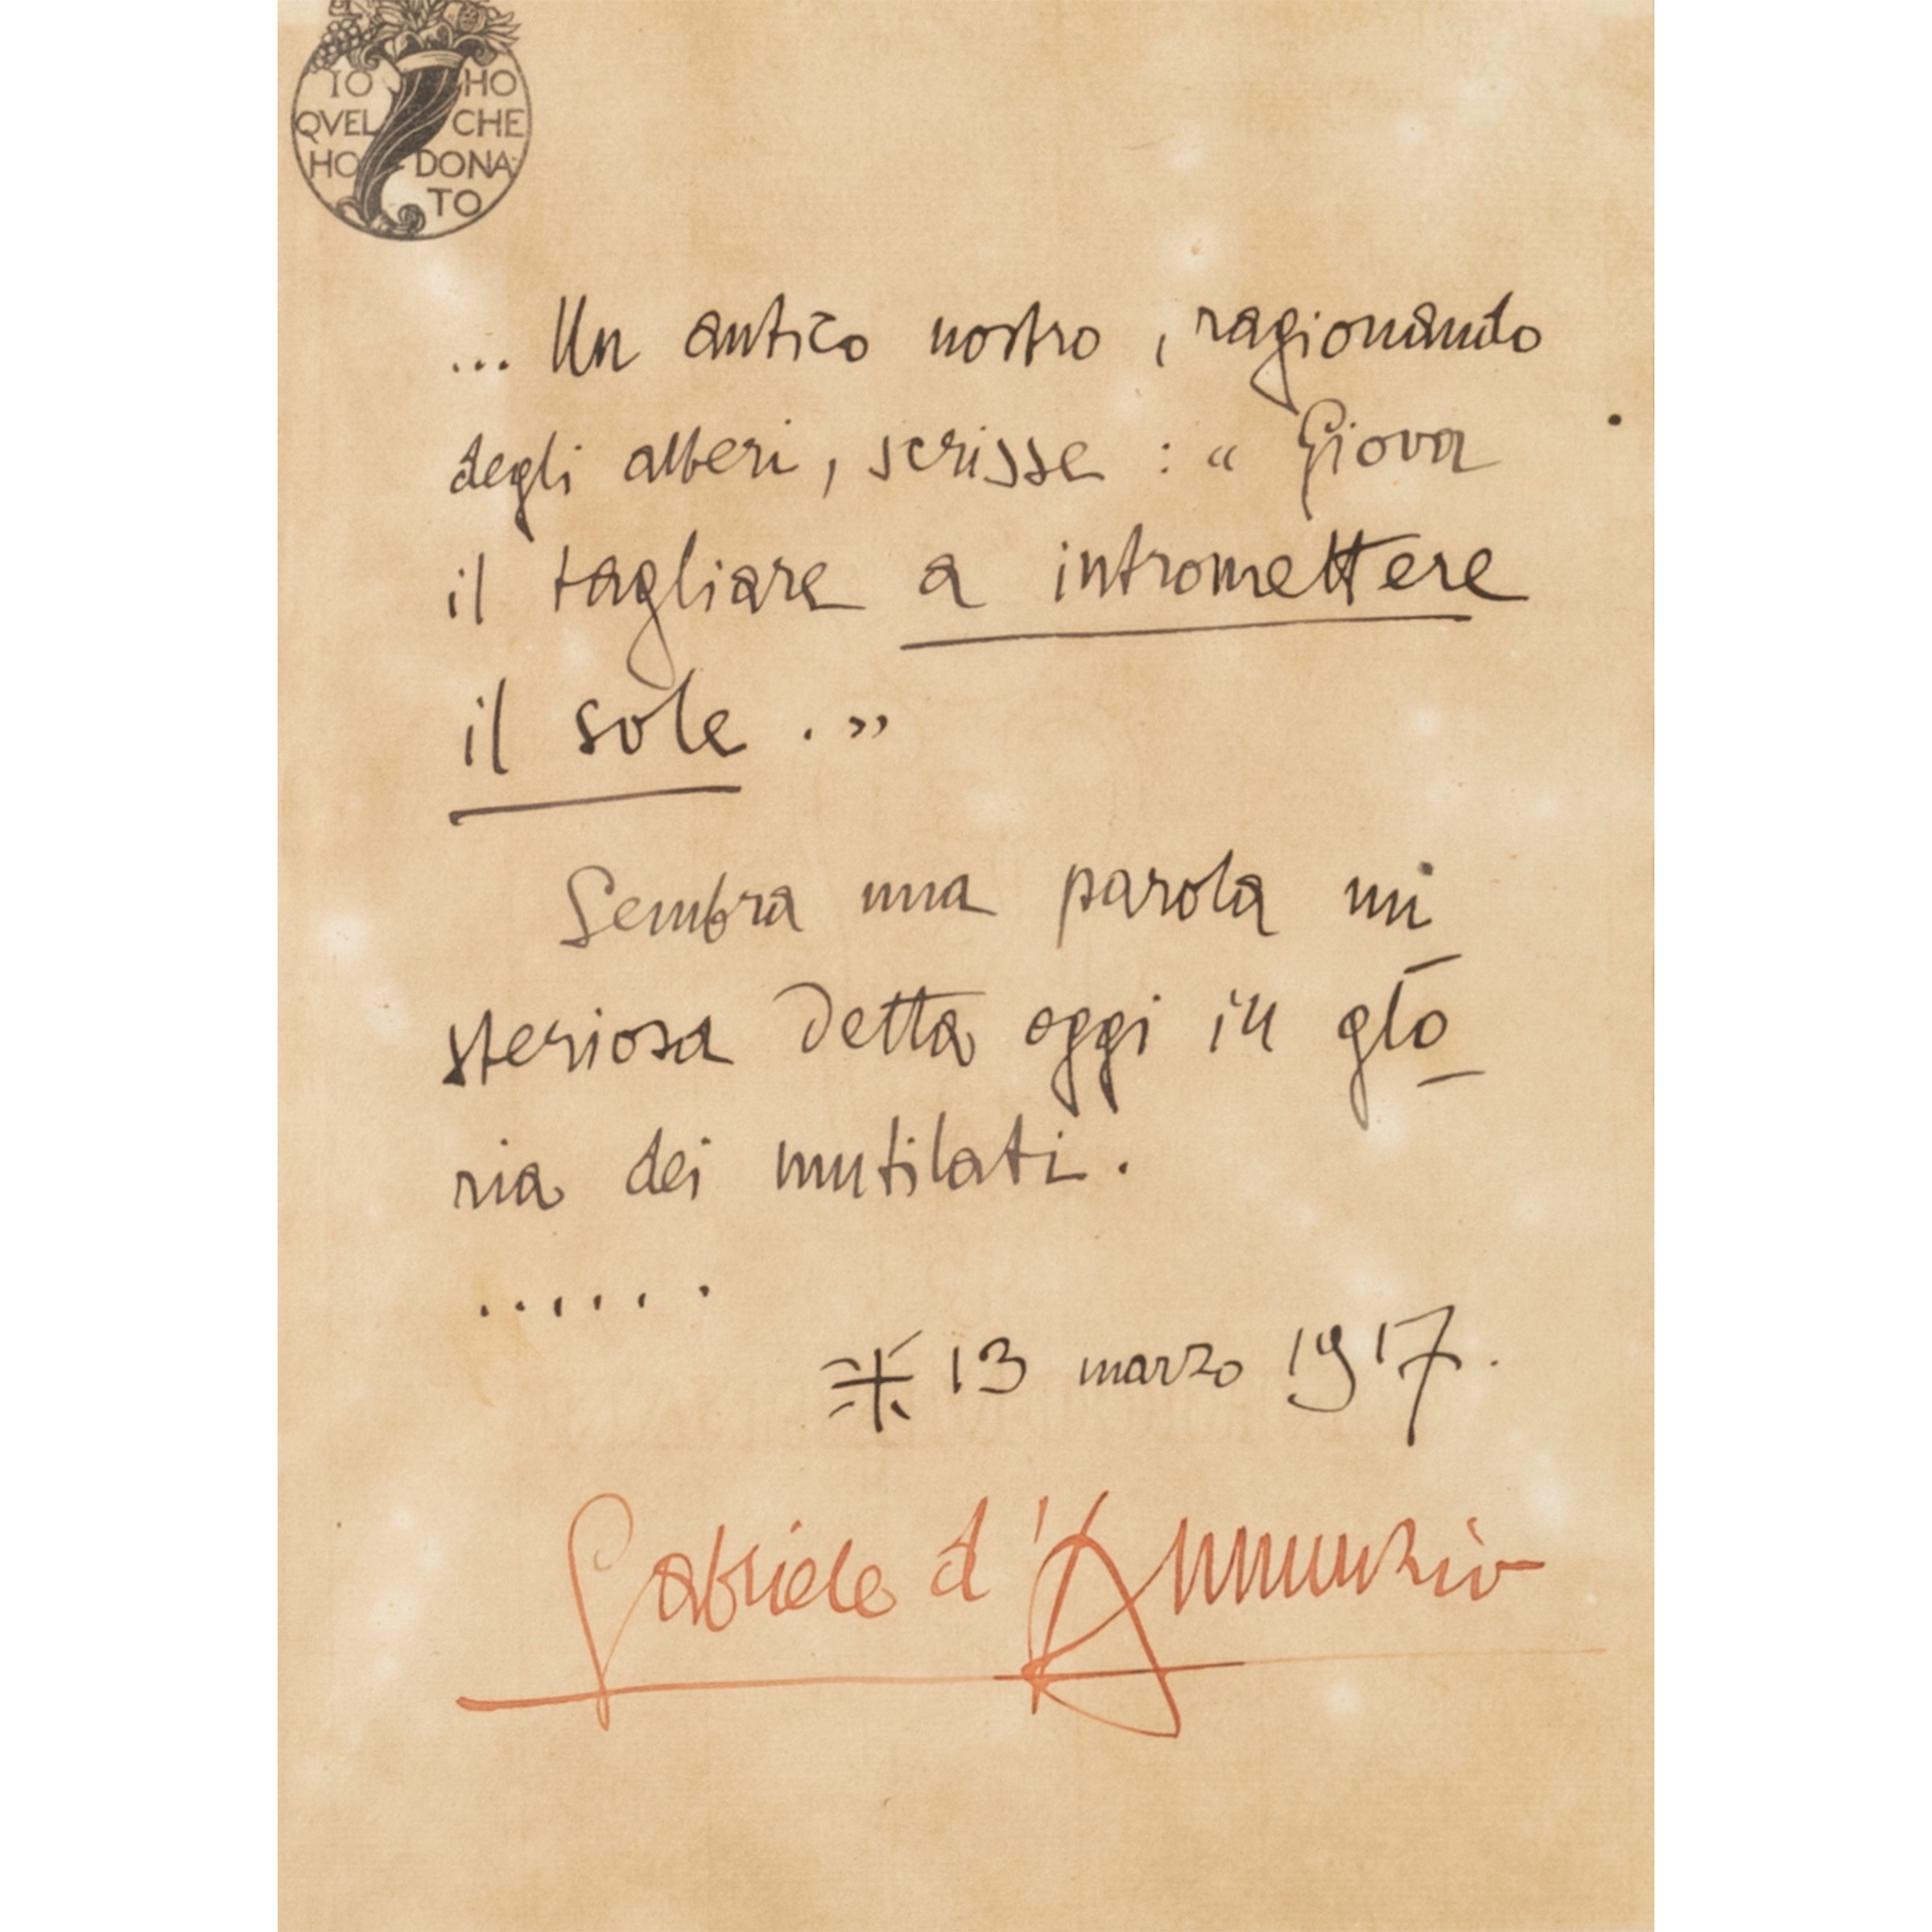 IO HO
QVEL CHE
HO DONA
TO
... Un antico nostro, ragionando
degli alberi, scrisse : « Giova
il tagliare a intromettere
il sole . »
Sembra una parola mi
steriosa detta oggi in glo
ria dei mutilati.
.......
※ 13 marzo 1917.
Gabriele d'Annunzio